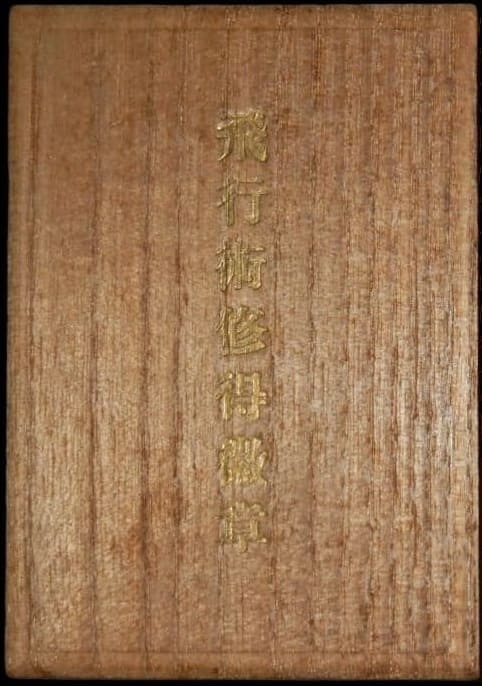 飛行術修得徽章